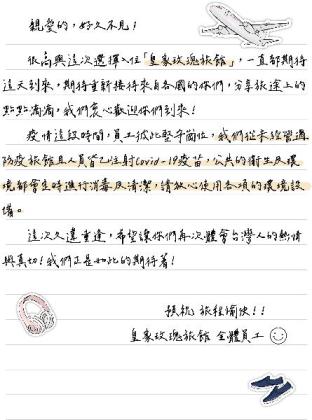 親愛的，好久不見！
很高興這次選擇入住「皇家玫瑰旅館」，一直都期待
這天到來，期待重新接待來自各國的你們，分享旅途上的
點點滴滴，我們衷心歡迎你們到來！
疫情這段時間，員工彼此堅守崗位，我們從未經營過
防疫旅館且人員皆已注射Covid-19疫苗，公共的衛生及環
境都會定時進行消毒及清潔，請放心使用各項的環境設
備。
這次久違重逢，希望讓你們再次體會台灣人的熱情
與真切！我們正是如此的期待著！
預祝 旅程愉快！！
皇家玫瑰旅館 全體員工